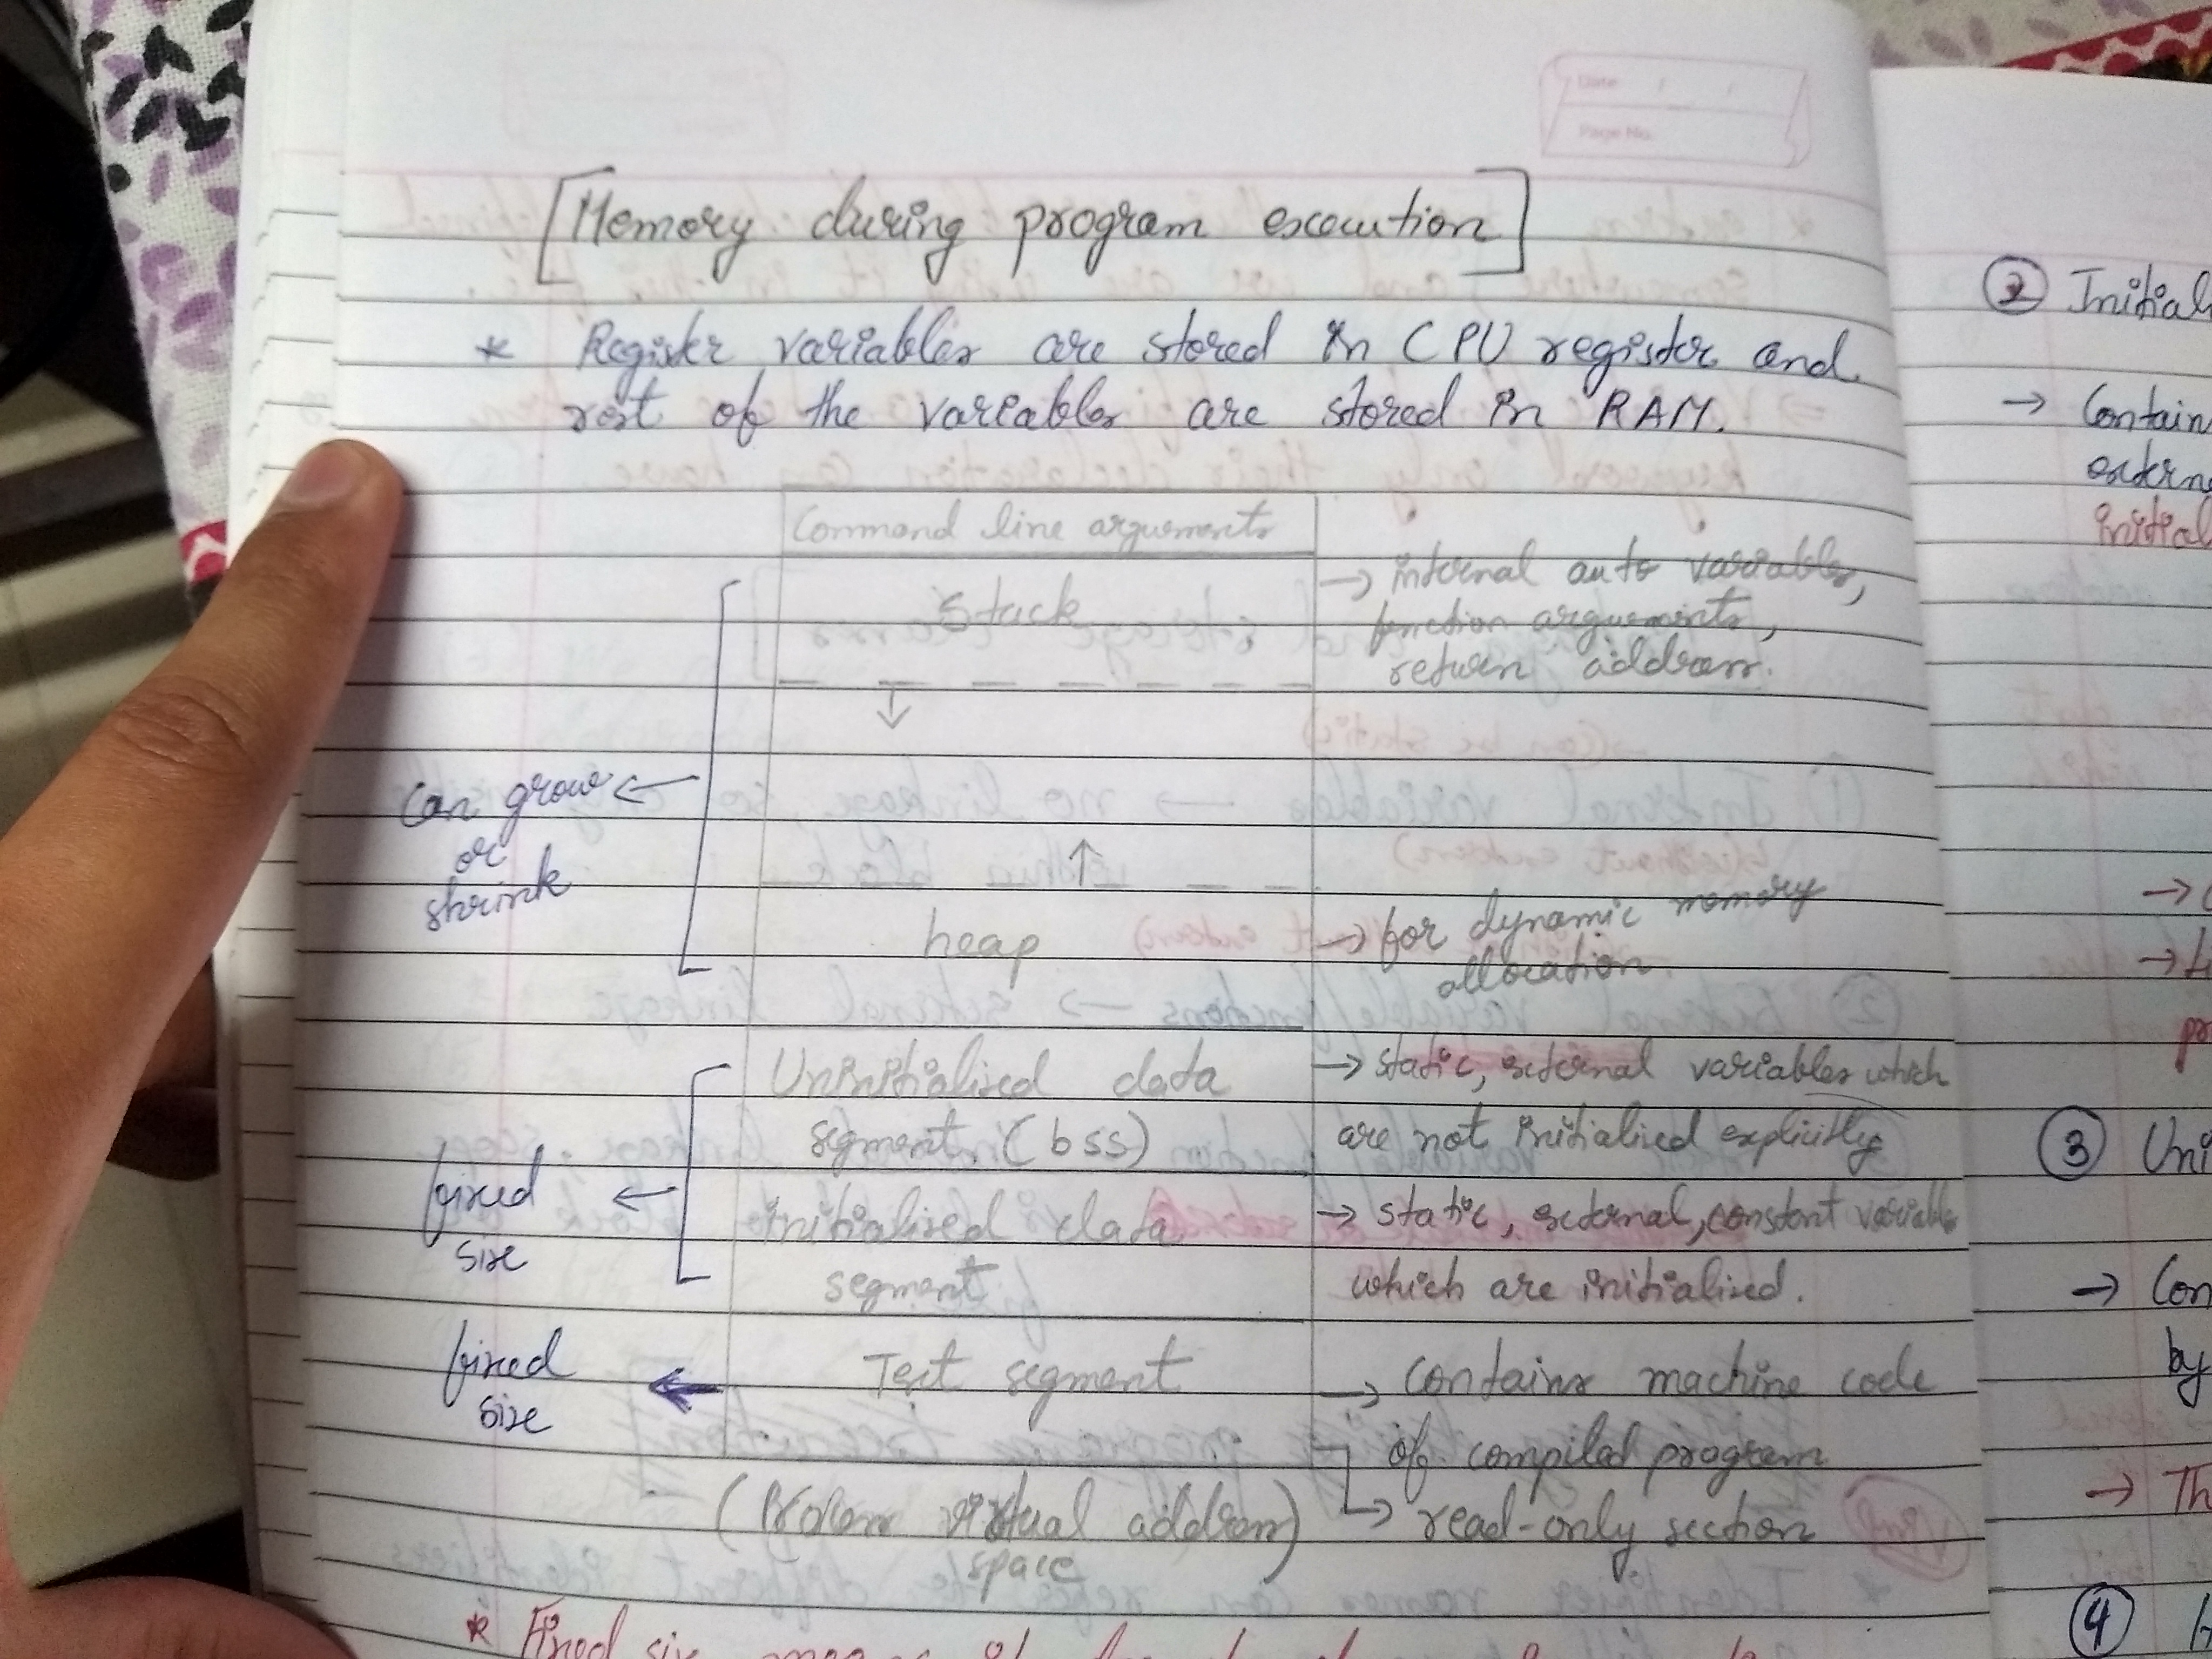 Date / /
Page No.
[Memory during program execution]
* Register variables are stored in CPU register and
rest of the variables are stored in RAM.
Command line arguements
Stack
→ internal auto variables,
function arguements,
return address.
↓
can grow
or
shrink
←
↑
heap
→ for dynamic memory
allocation
Uninitialised data
segment (bss)
→ static, external variables which
are not initialised explicitly
fixed
size
←
initialised data
segment
→ static, external, constant variables
which are initialised.
fixed
size
←
Text segment
→ contains machine code
of compiled program
→ read-only section
(Process virtual address)
space
* Fixed size means
② Initial
→ Contain
extern
initial
③ Uni
→ Con
by
→ Th
④